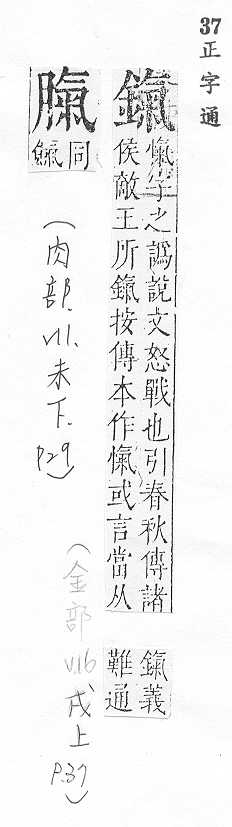 37 正字通
鎎
愾字之譌說文怒戰也引春秋傳諸
侯敵王所鎎按傳本作愾或言當从
鎎義
難通
(金部 v.16 戌上 P.37)
同
(肉部. v.11. 未下. P.29)